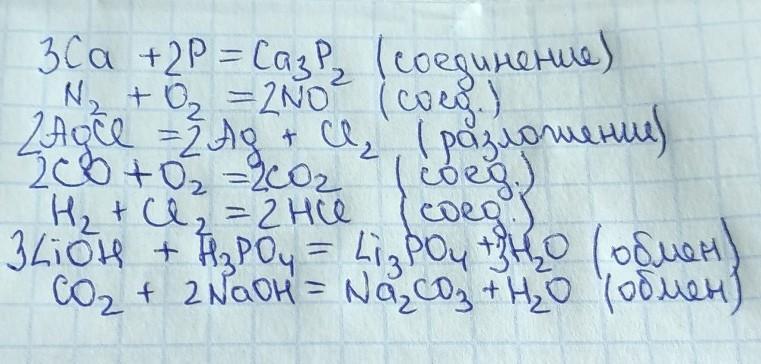 3Ca + 2P = Ca₃P₂ (соединение)
N₂ + O₂ = 2NO (соед.)
2AgCl = 2Ag + Cl₂ (разложение)
2CO + O₂ = 2CO₂ (соед.)
H₂ + Cl₂ = 2HCl (соед.)
3LiOH + H₃PO₄ = Li₃PO₄ + 3H₂O (обмен)
CO₂ + 2NaOH = Na₂CO₃ + H₂O (обмен)